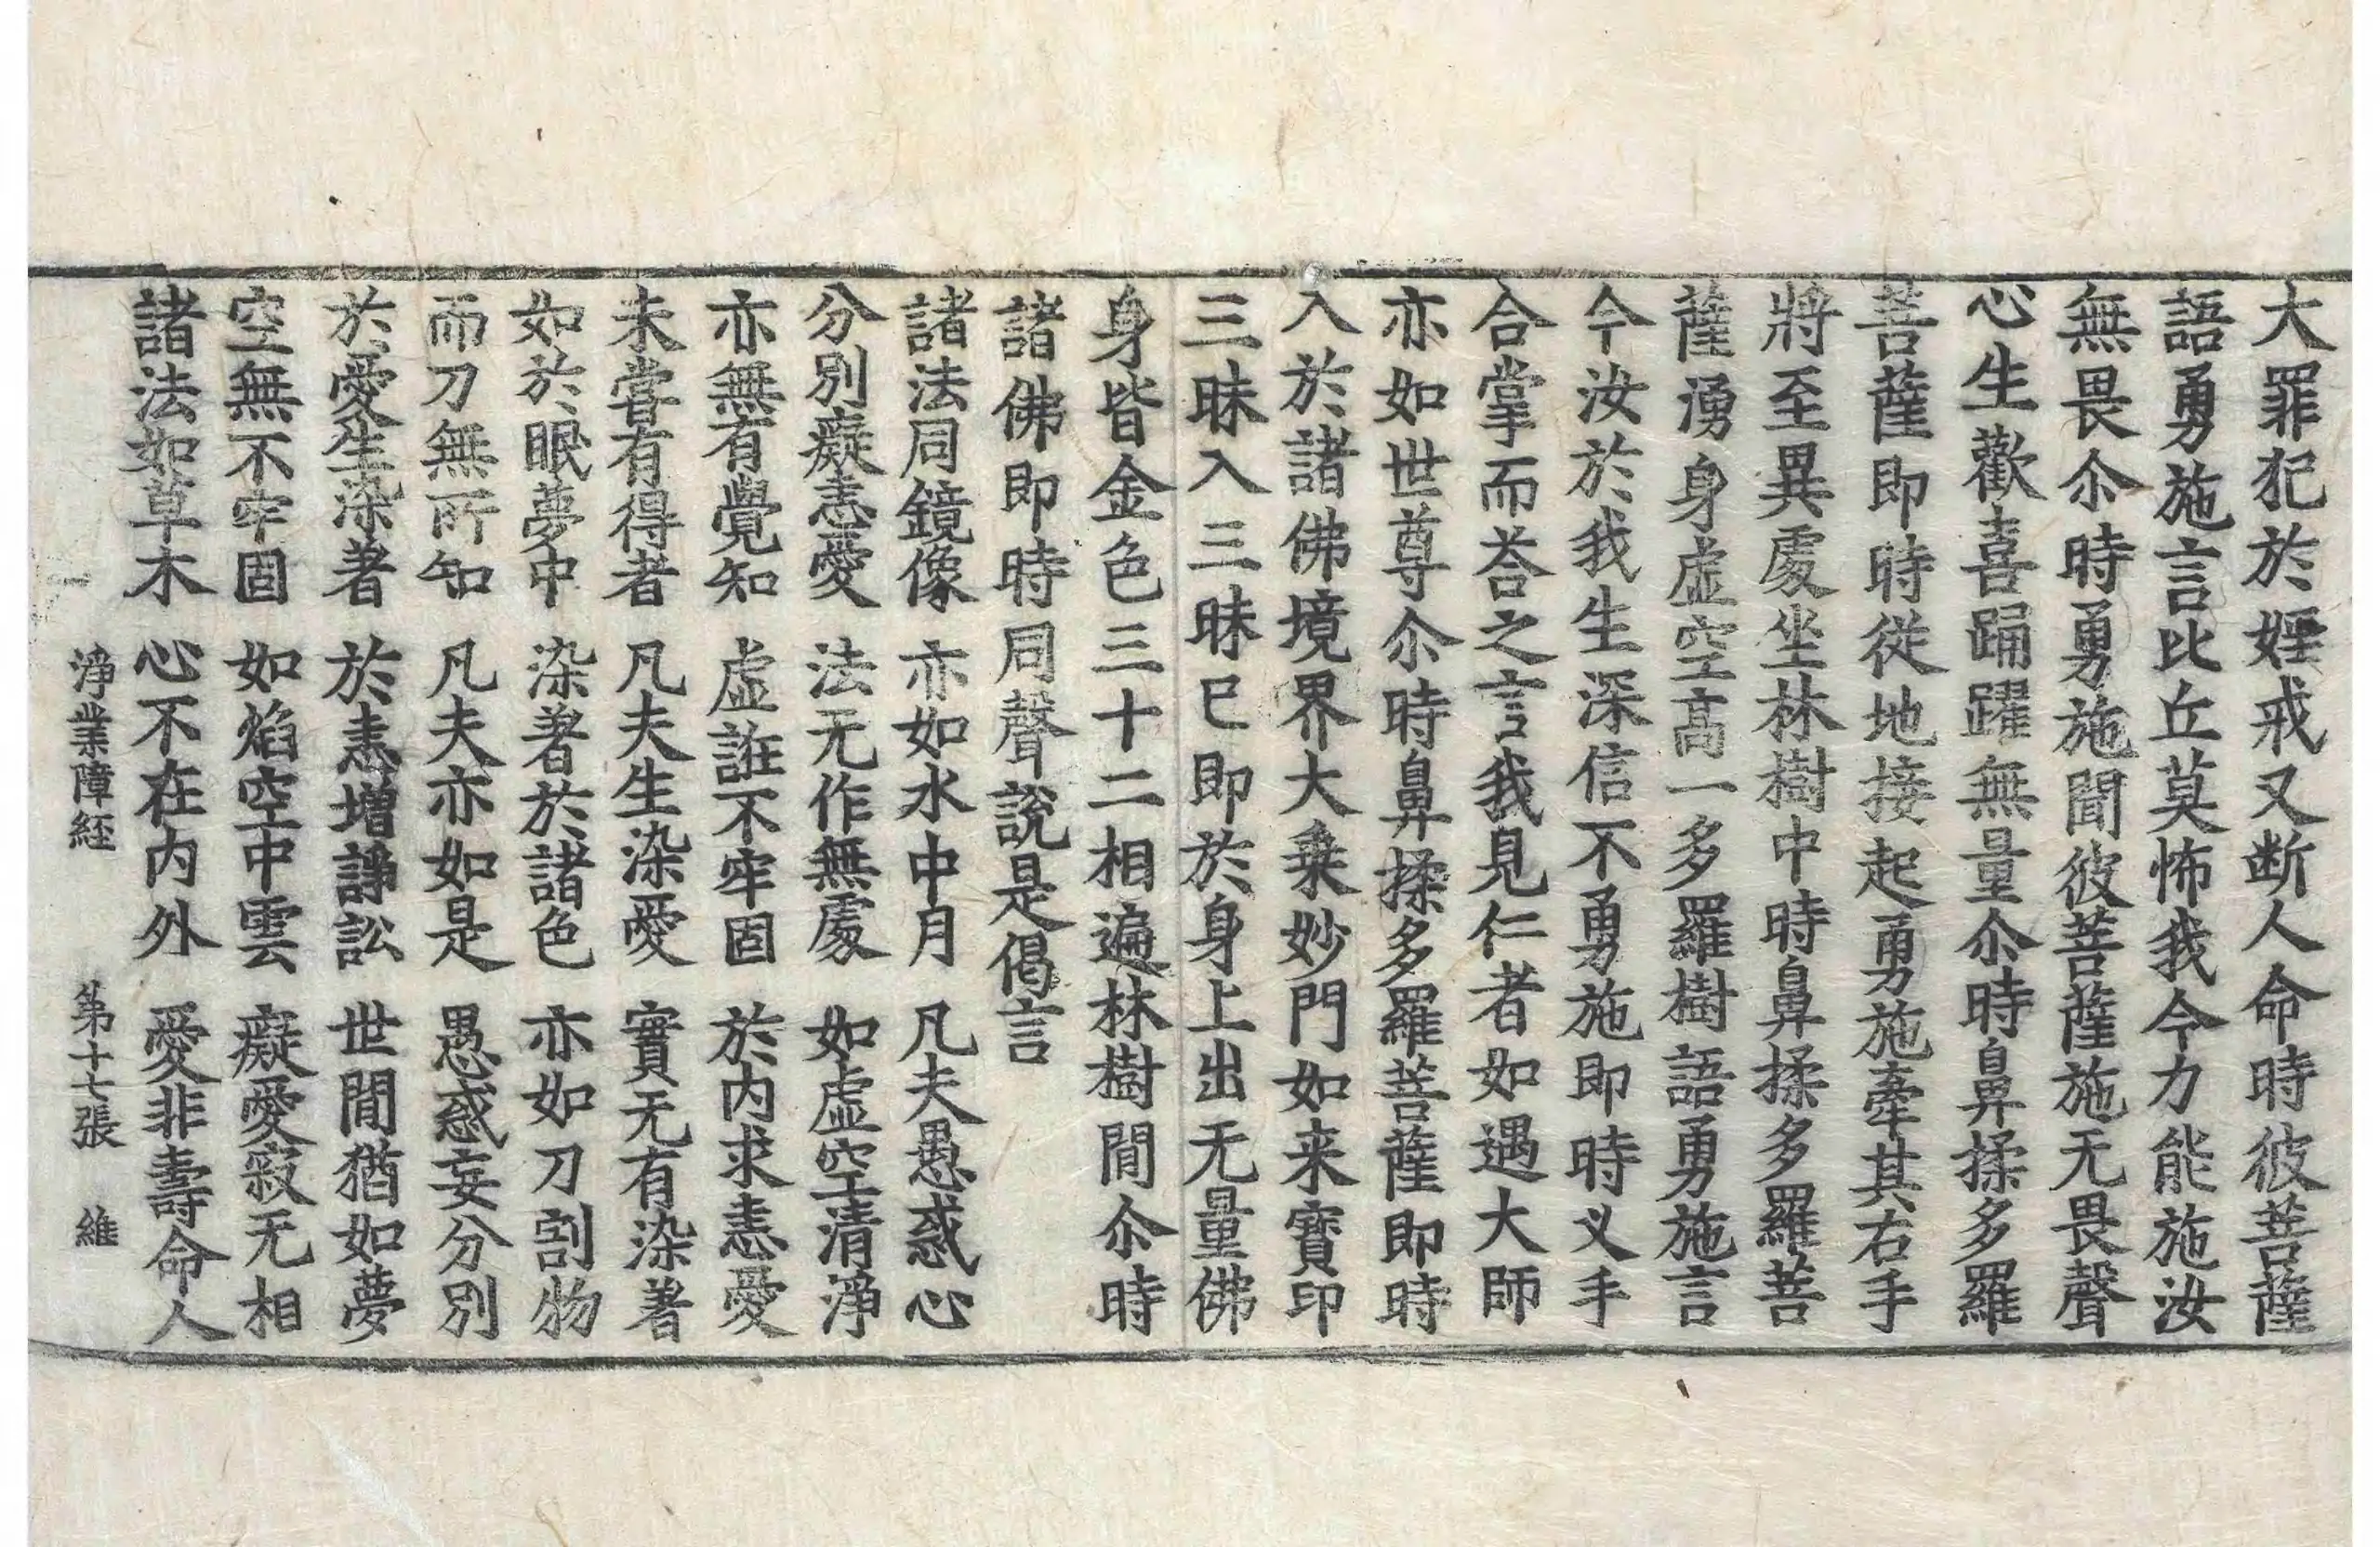 大罪犯於婬戒又断人命時彼菩薩
語勇施言比丘莫怖我今力能施汝
無畏尒時勇施聞彼菩薩施无畏聲
心生歡喜踊躍無量尒時鼻揉多羅
菩薩即時從地接起勇施牽其右手
將至異處坐林樹中時鼻揉多羅菩
薩湧身虛空高一多羅樹語勇施言
今汝於我生深信不勇施即時义手
合掌而荅之言我見仁者如遇大師
亦如世尊尒時鼻揉多羅菩薩即時
入於諸佛境界大乗妙門如来寶印
三昧入三昧已即於身上出无量佛
身皆金色三十二相遍林樹間尒時
諸佛即時同聲說是偈言
諸法同鏡像 亦如水中月 凡夫愚惑心
分別癡恚愛 法无作無處 如虛空清淨
亦無有覺知 虛誑不牢固 於内求恚愛
未甞有得者 凡夫生染愛 實无有染著
如於眠夢中 染著於諸色 亦如刀割物
而刀無所知 凡夫亦如是 愚惑妄分別
於愛生染著 於恚増諍訟 世間猶如夢
空無不牢固 如焰空中雲 癡愛寂无相
諸法如草木 心不在内外 愛非壽命人
淨業障経 第十七張 維